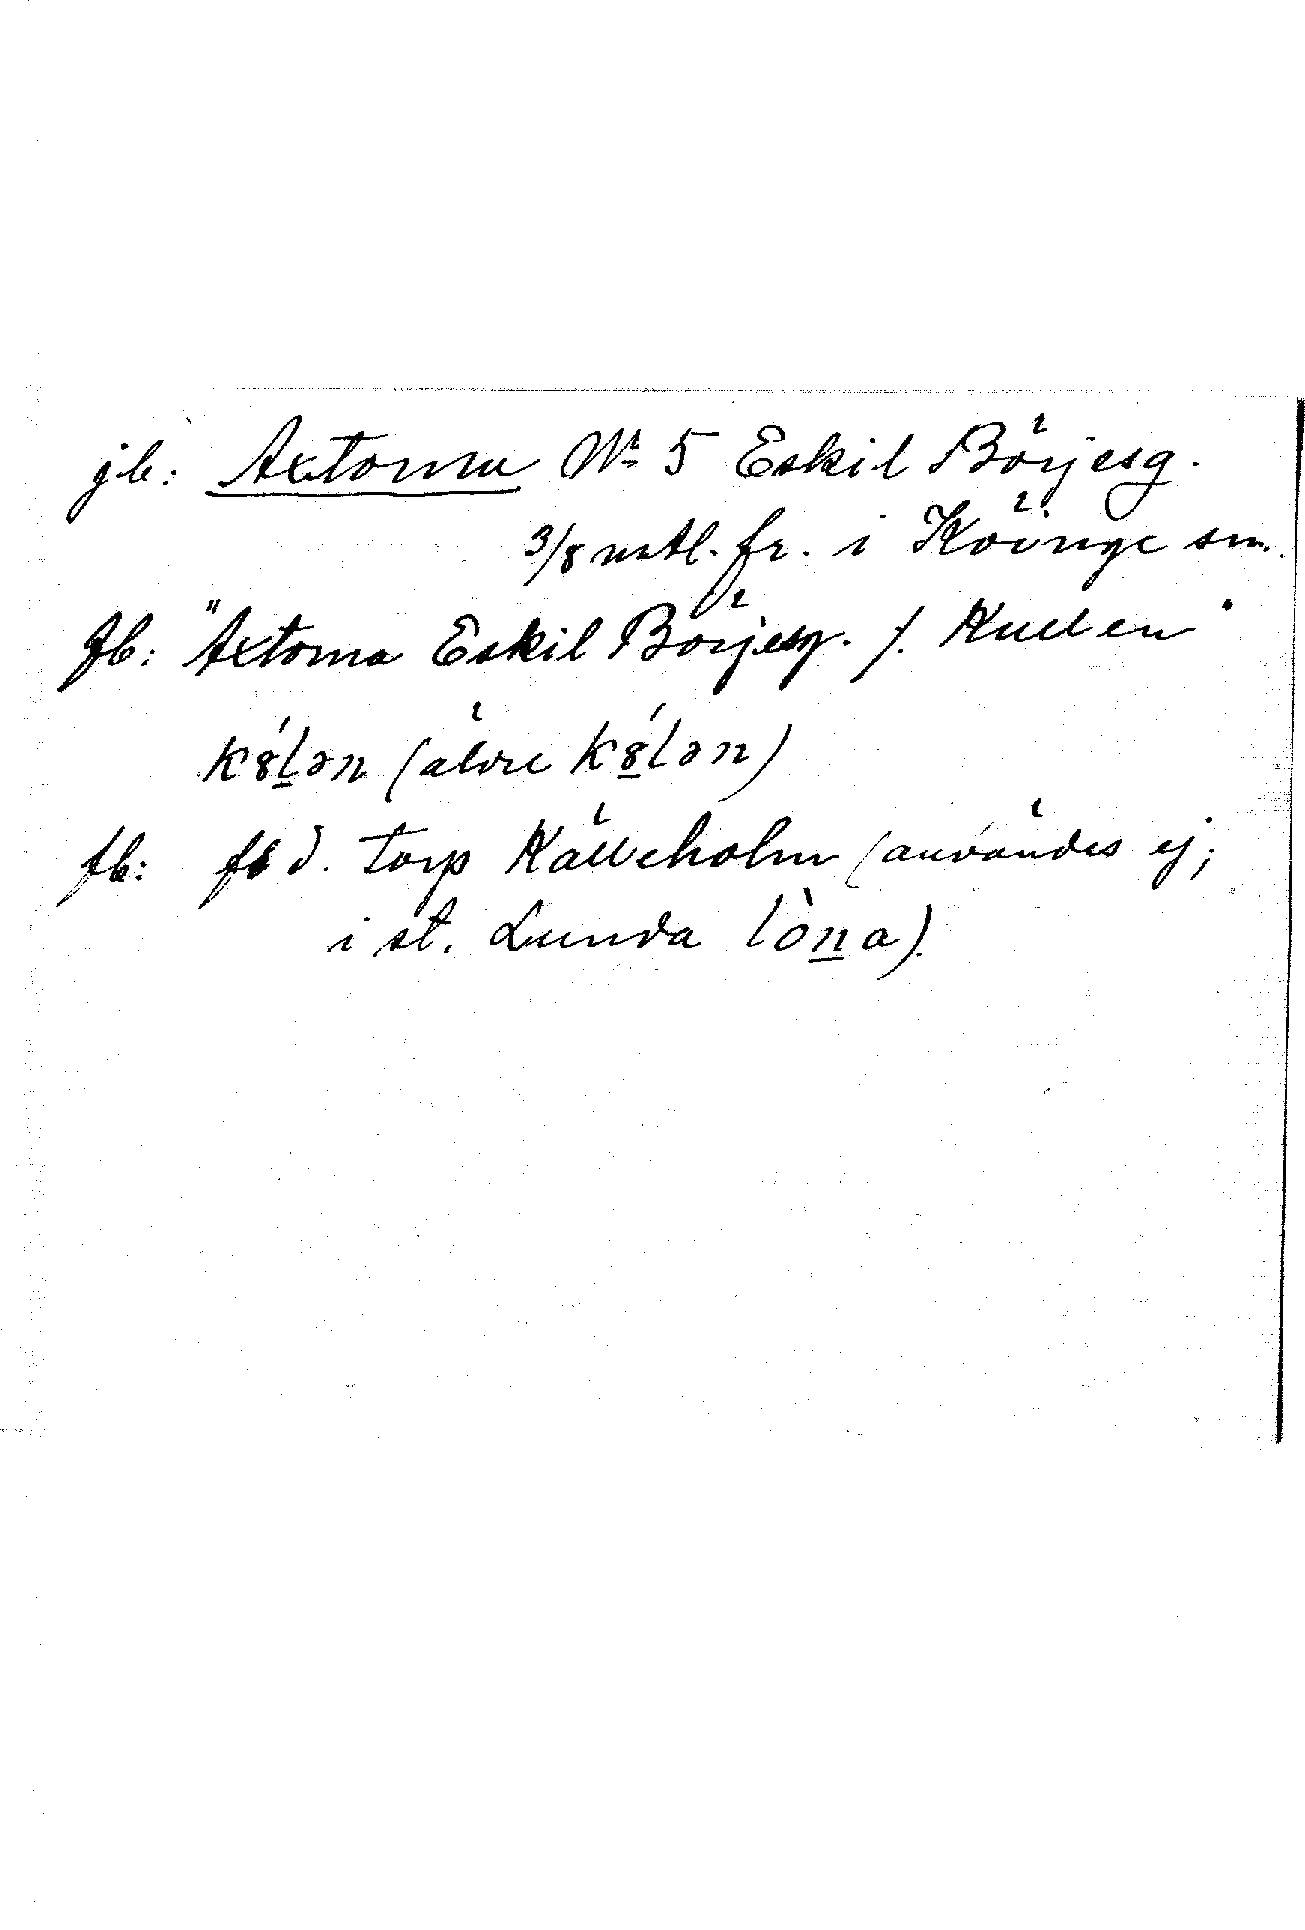 jb: Axtorna No 5 Eskil Börjesg.
3/8 mtl. fr. i Köinge sn.
fb: "Axtorna Eskil Börjesg. /. Kullen"
k8́l̲ən (äldre k8̲́lən)
fb: fsd. torp Källeholm (användes ej;
i st. Lunda lòn̲a).